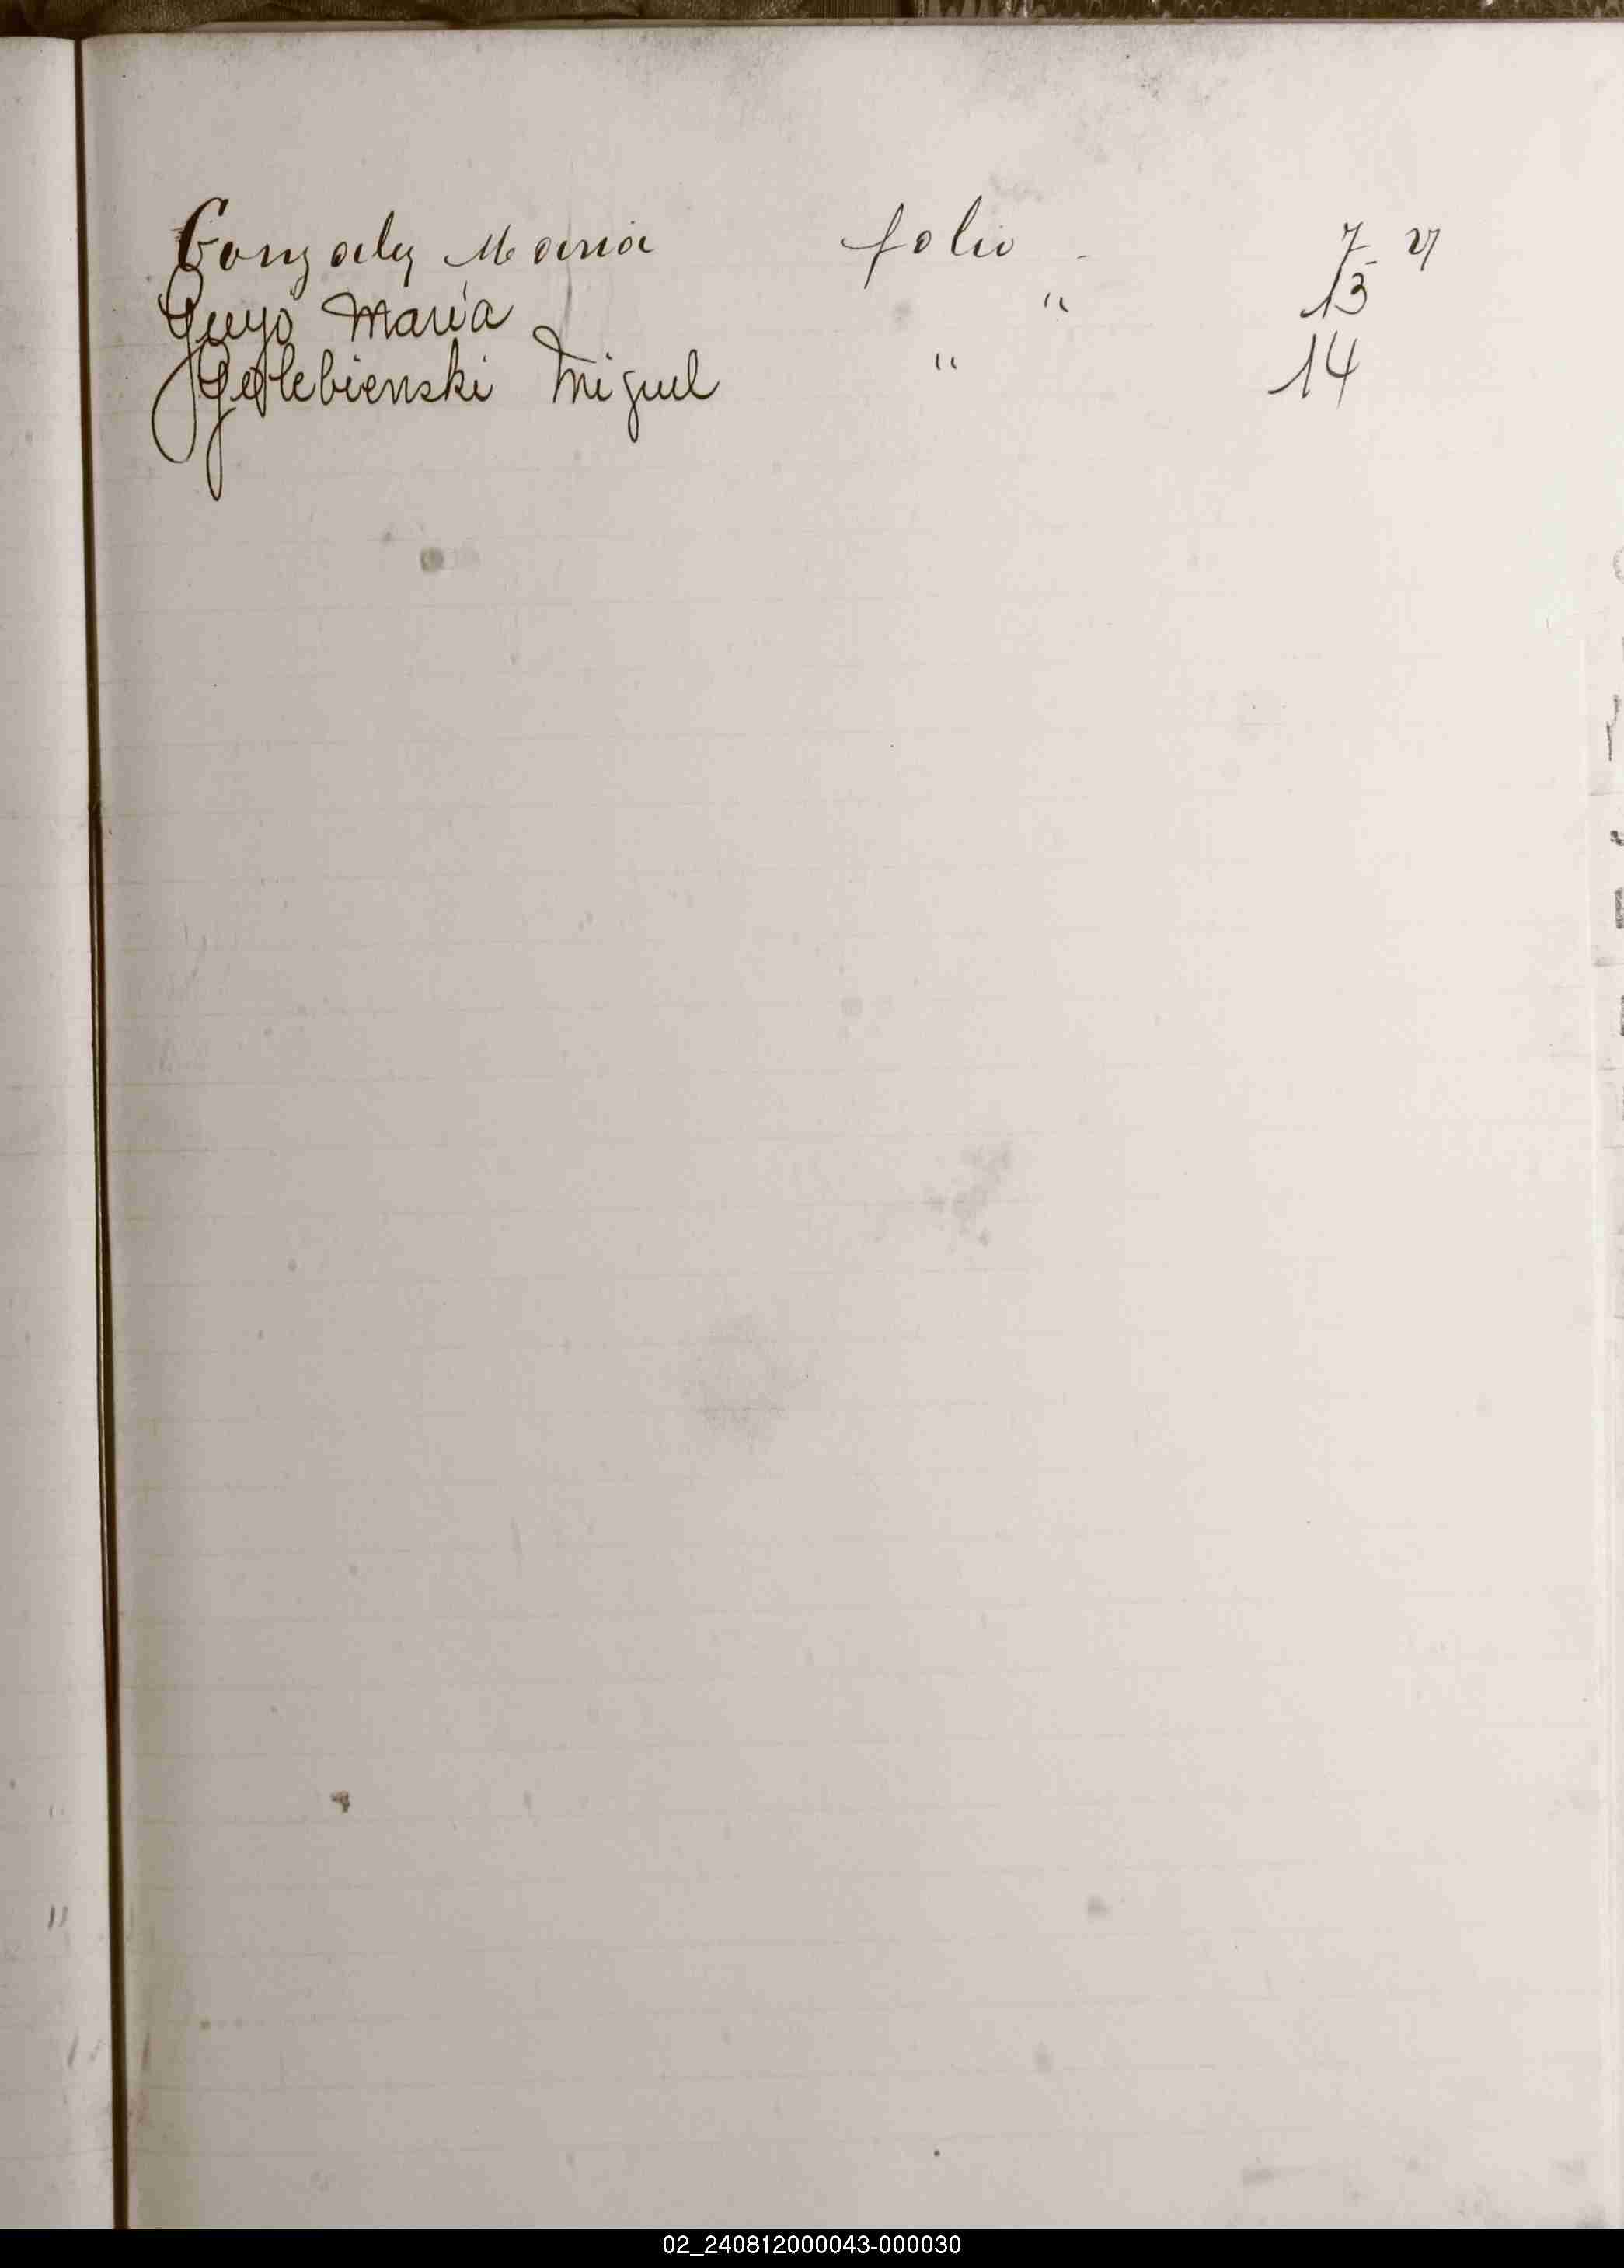 Gonzalez Maria folio - 7 v
Guyo María " 13
Golebienski Miguel " 14
02_240812000043-000030